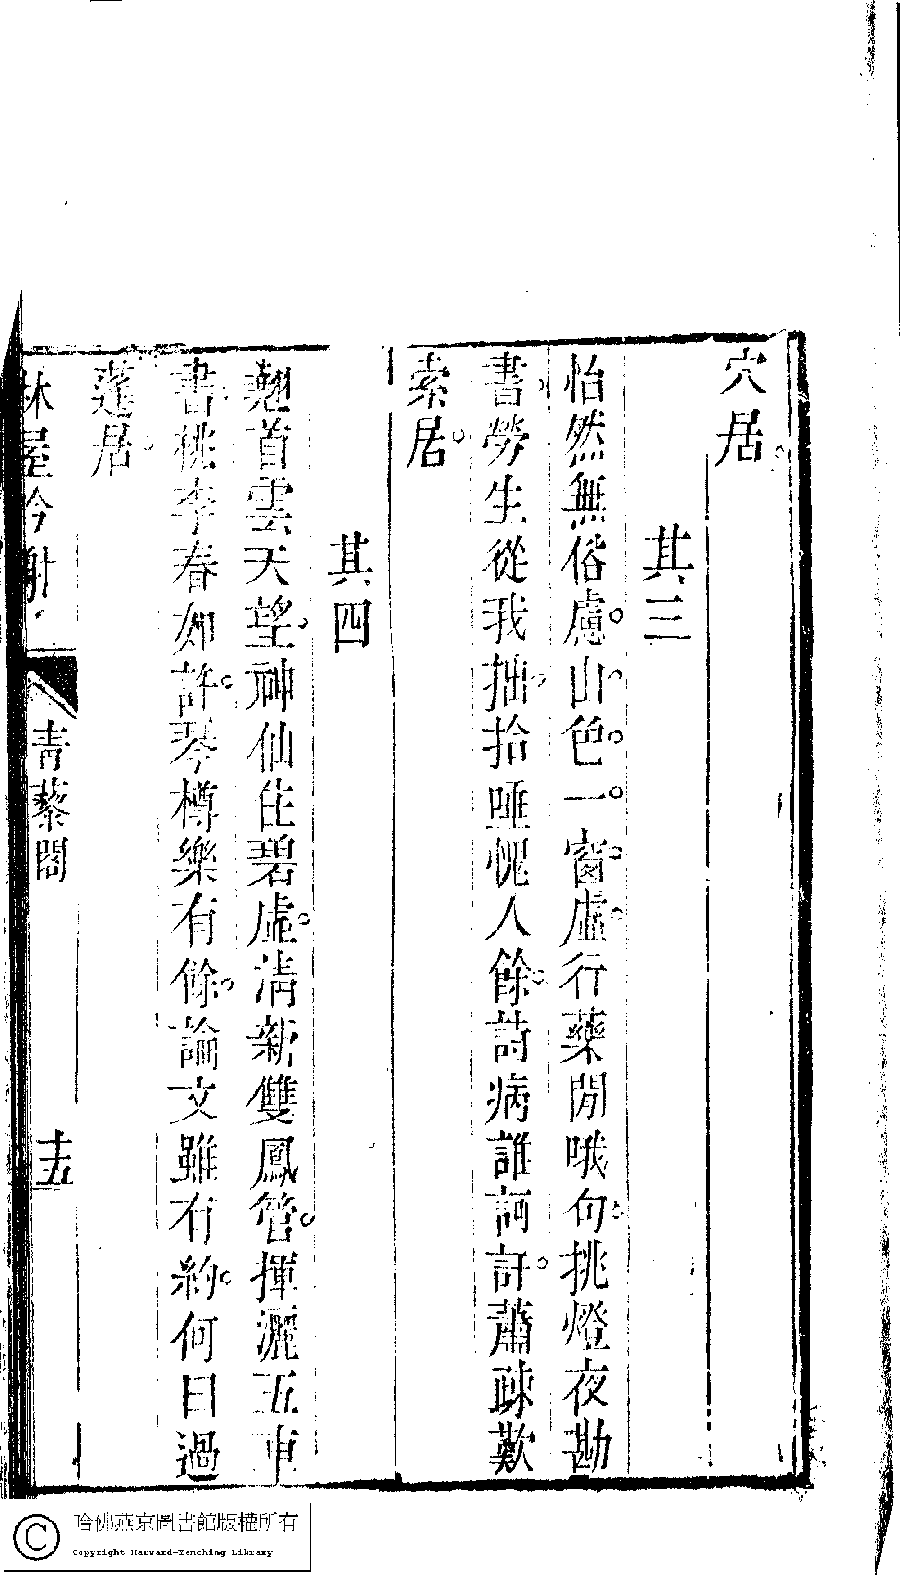 穴居
其三
怡然無俗慮山色一窗虛行藥閒哦句挑燈夜勘
書勞生從我拙拾唾愧人餘詩病誰訶訐蕭疎歎
索居
其四
翹首雲天望神仙住碧虛淸新雙鳳管揮灑五車
書桃李春如許琴樽樂有餘論文雖有約何日過
蓬居
林屋唫榭
靑藜閣
十五
哈佛燕京圖書館版權所有
Copyright Harvard-Yenching Library